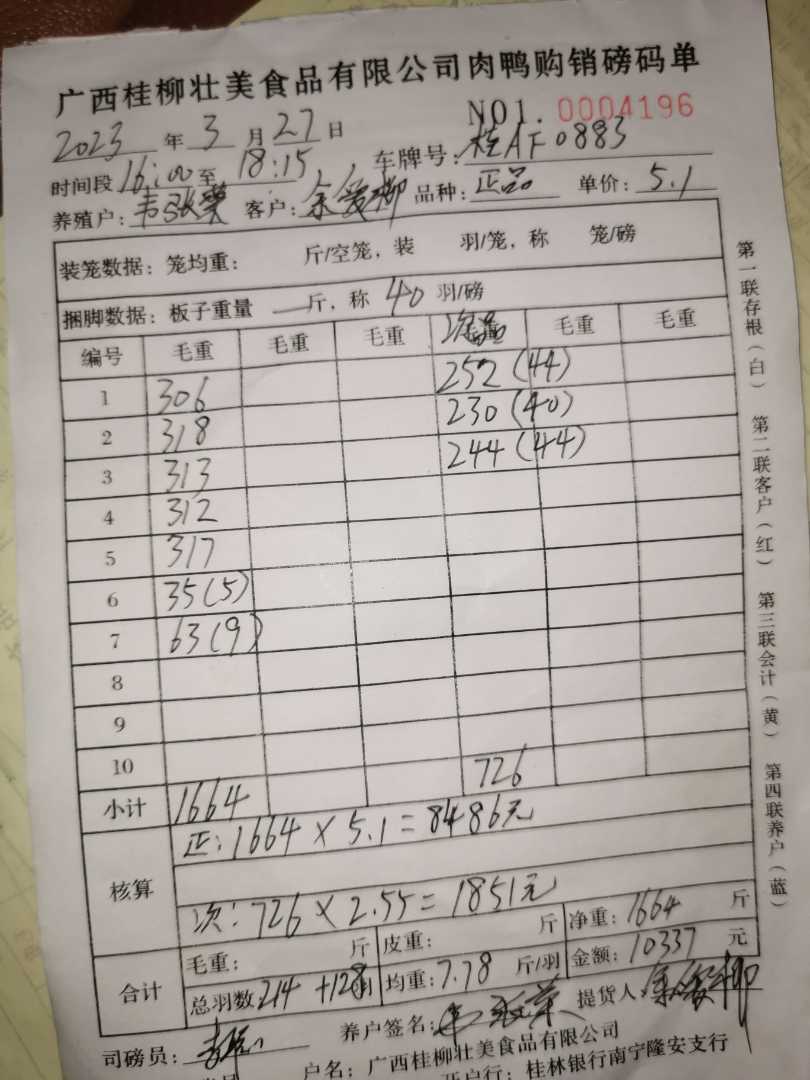 广西桂柳壮美食品有限公司肉鸭购销磅码单
NO1. 0004196
2023 年 3 月 27 日
时间段 16:00 至 18:15 车牌号: 桂AF0883
养殖户: 韦张荣 客户: 余爱柳 品种: 正品 单价: 5.1
装笼数据: 笼均重: 斤/空笼, 装 羽/笼, 称 笼/磅
捆脚数据: 板子重量 斤, 称 40 羽/磅
编号 毛重 毛重 毛重 次品 毛重 毛重
1 306 252(44)
2 318 230(40)
3 313 244(44)
4 312
5 317
6 35(5)
7 63(9)
8
9
10 726
小计 1664
核算 正: 1664 × 5.1 = 8486元
次: 726 × 2.55 = 1851元
合计 毛重: 斤 皮重: 斤 净重: 1664 斤
总羽数 214 +128 均重: 7.78 斤/羽 金额: 10337 元
司磅员: 养户签名: 韦张荣 提货人: 余爱柳
户名: 广西桂柳壮美食品有限公司
开户行: 桂林银行南宁隆安支行
第一联存根(白) 第二联客户(红) 第三联会计(黄) 第四联养户(蓝)